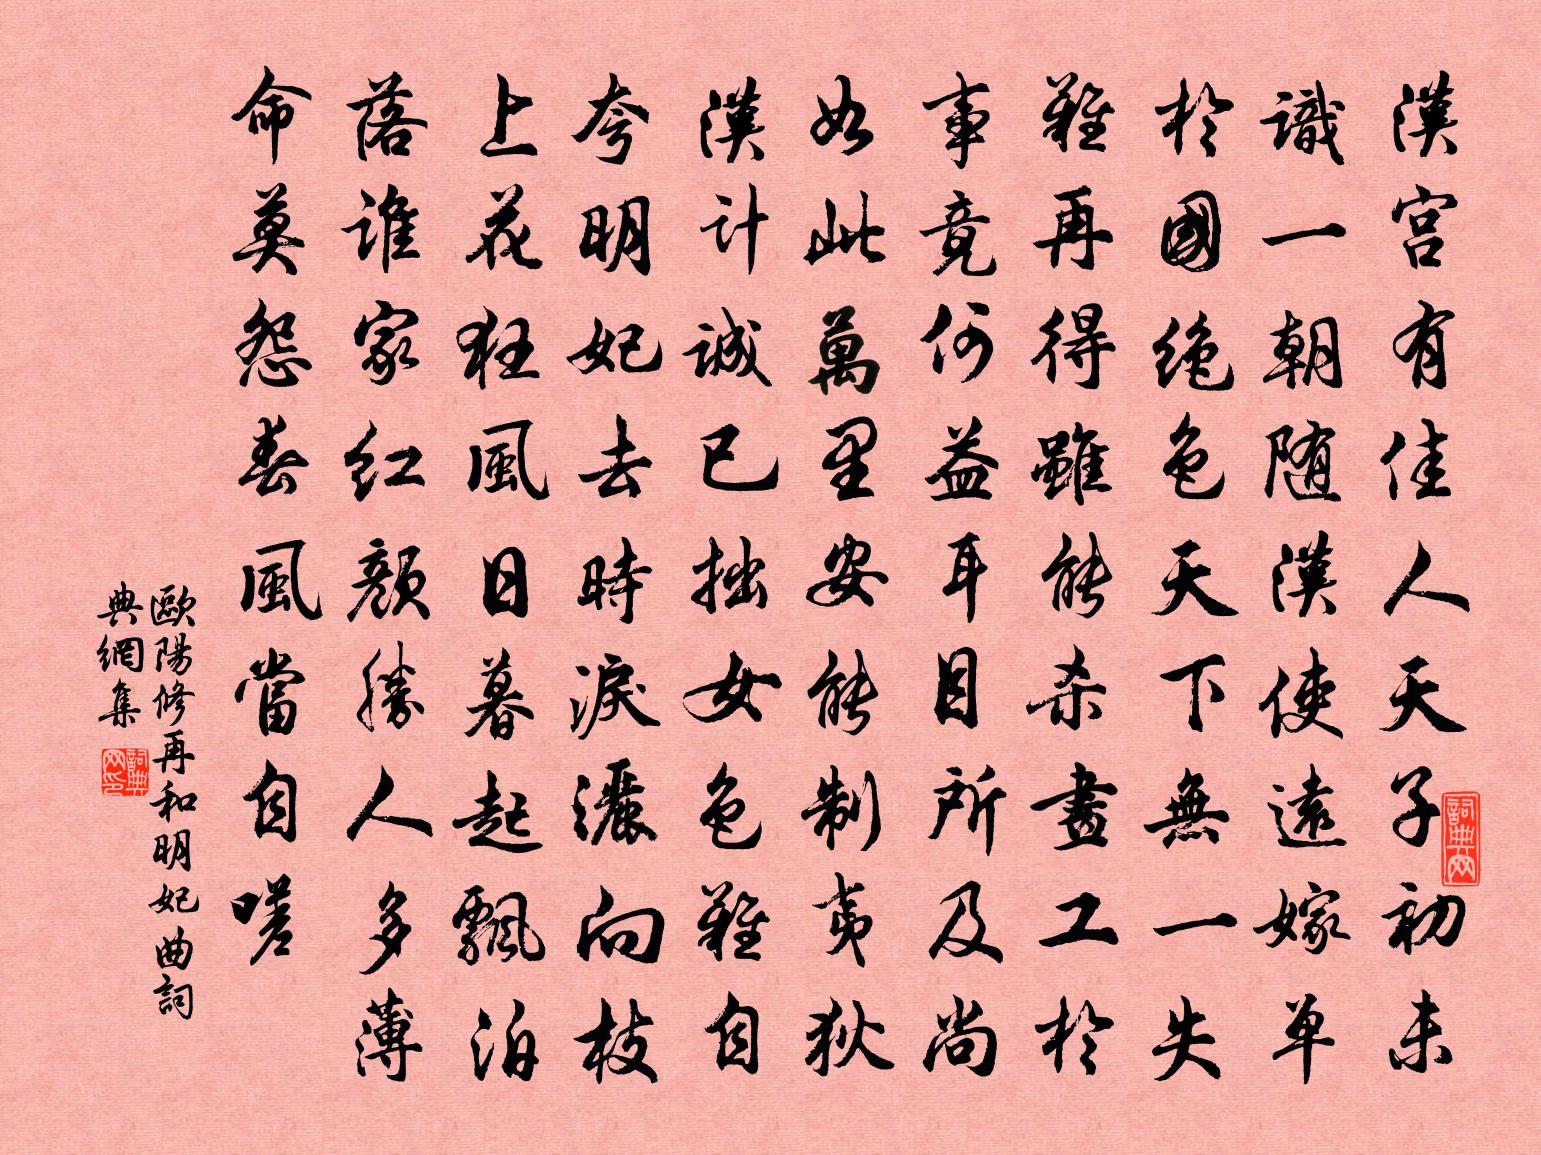 漢宮有佳人天子初未
識一朝随漢使遠嫁单
於國绝色天下無一失
難再得雖能杀畫工於
事竟何益耳目所及尚
如此萬里安能制夷狄
漢计誠已拙女色難自
夸明妃去時淚灑向枝
上花狂風日暮起飄泊
落谁家红颜勝人多薄
命莫怨春風當自嗟
歐陽修再和明妃曲詞
典網集
詞典网
詞典网印